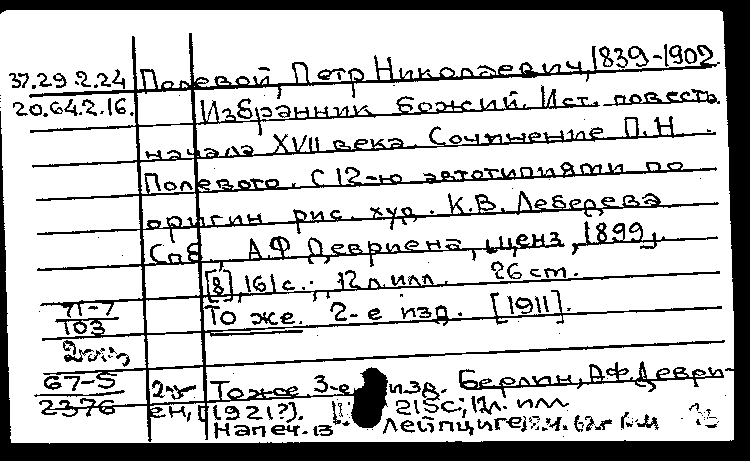 37.29.2.24 Полевой, Петр Николаевич, 1839-1902
20.64.2.16. Избранник божий. Ист. повесть
начала XVII века. Сочинение П.Н.
Полевого. С 12-ю автотипиями по
оригин рис. худ. К.В. Лебедева
Спб, А.Ф Девриена, ценз, 1899.
[8], 161 с.; 12 л. илл. 26 cm.
71-7
103
То же. 2-е изд. [1911].
67-5
2376
То же. 3-е изд. Берлин, АФ Деври-
ен, [1921?]. 215с; 12л. илл
Напеч. в Лейпциге